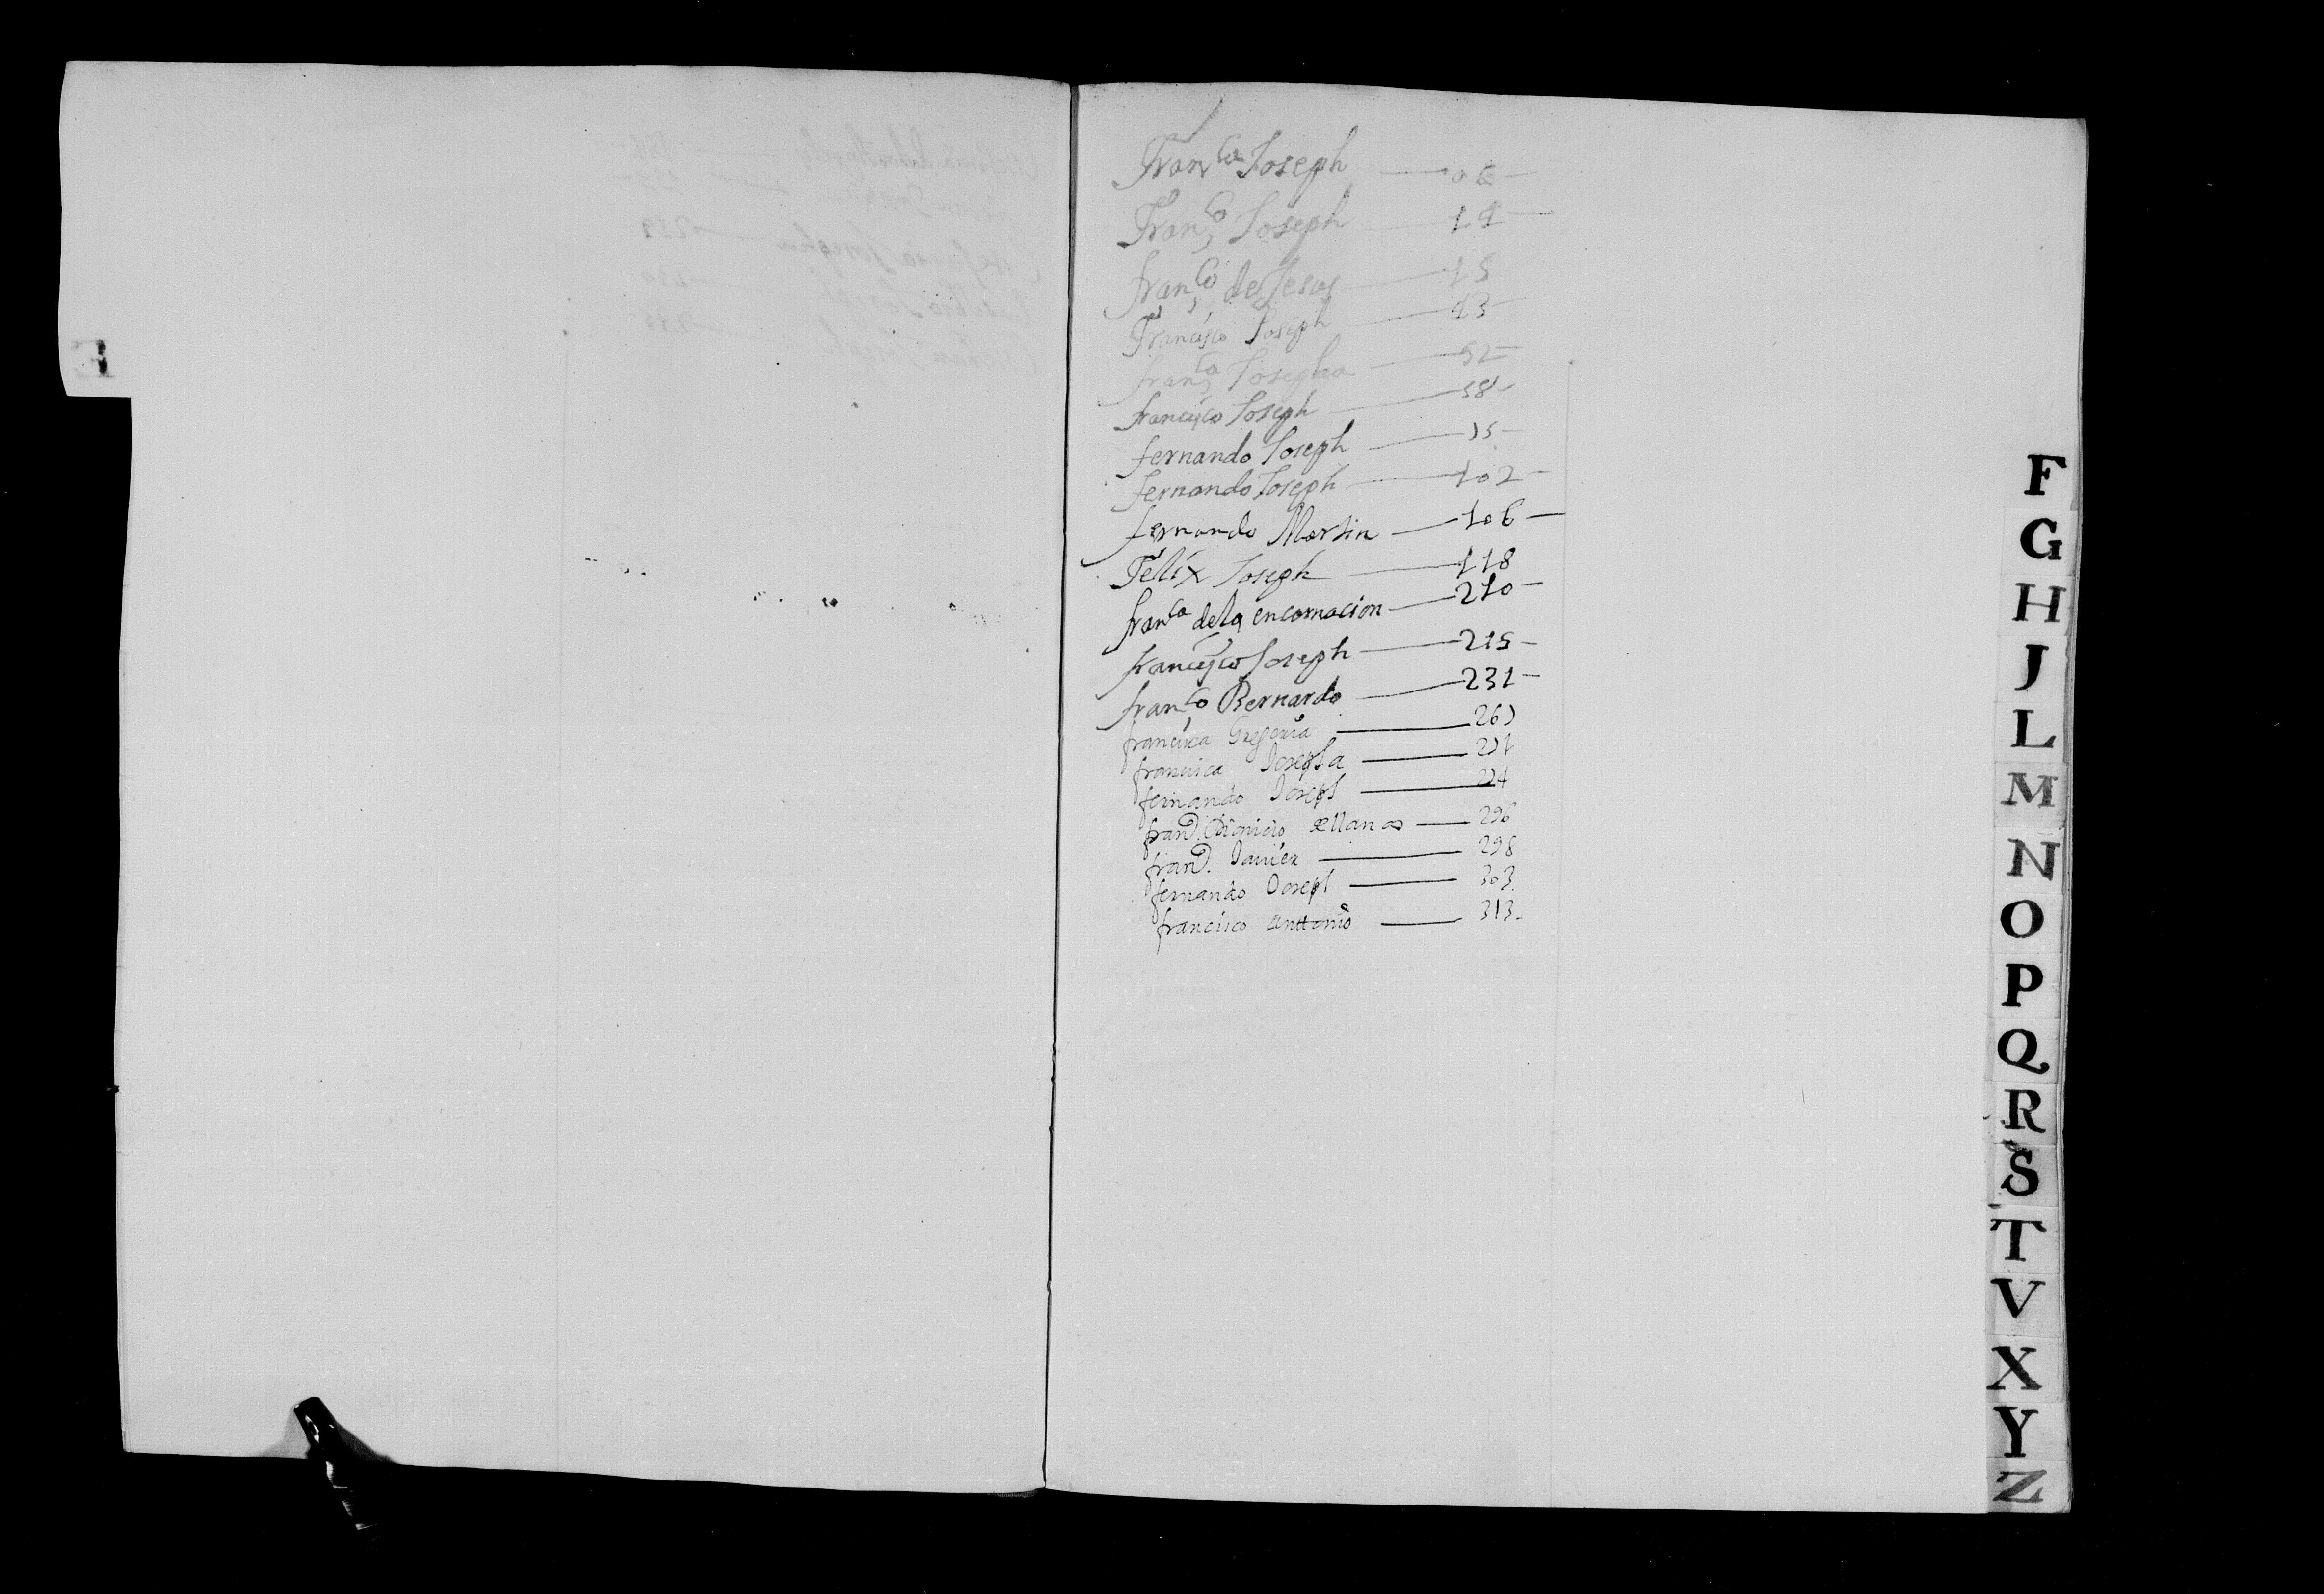 Fran.co Joseph — 06 —
Fran.co Joseph — 14 —
fran.co de Jesus — 15
Francisco Joseph — 43 —
fran.ca Josepha — 52 —
francisco Joseph — 58 —
fernando Joseph —
fernando Joseph — 102 —
fernando Martin — 106 —
Felix Joseph — 118
fran.ca de la encarnacion — 210 —
francisco Joseph — 215 —
fran.co Bernardo — 231 —
francisca Gregoria —
francisca Josepha —
fernando Joseph —
Dionicio — 296
Javier — 298
fernando Joseph — 303.
francisco Anttonio — 313 -
F
G
H
J
L
M
N
O
P
Q
R
S
T
V
X
Y
Z